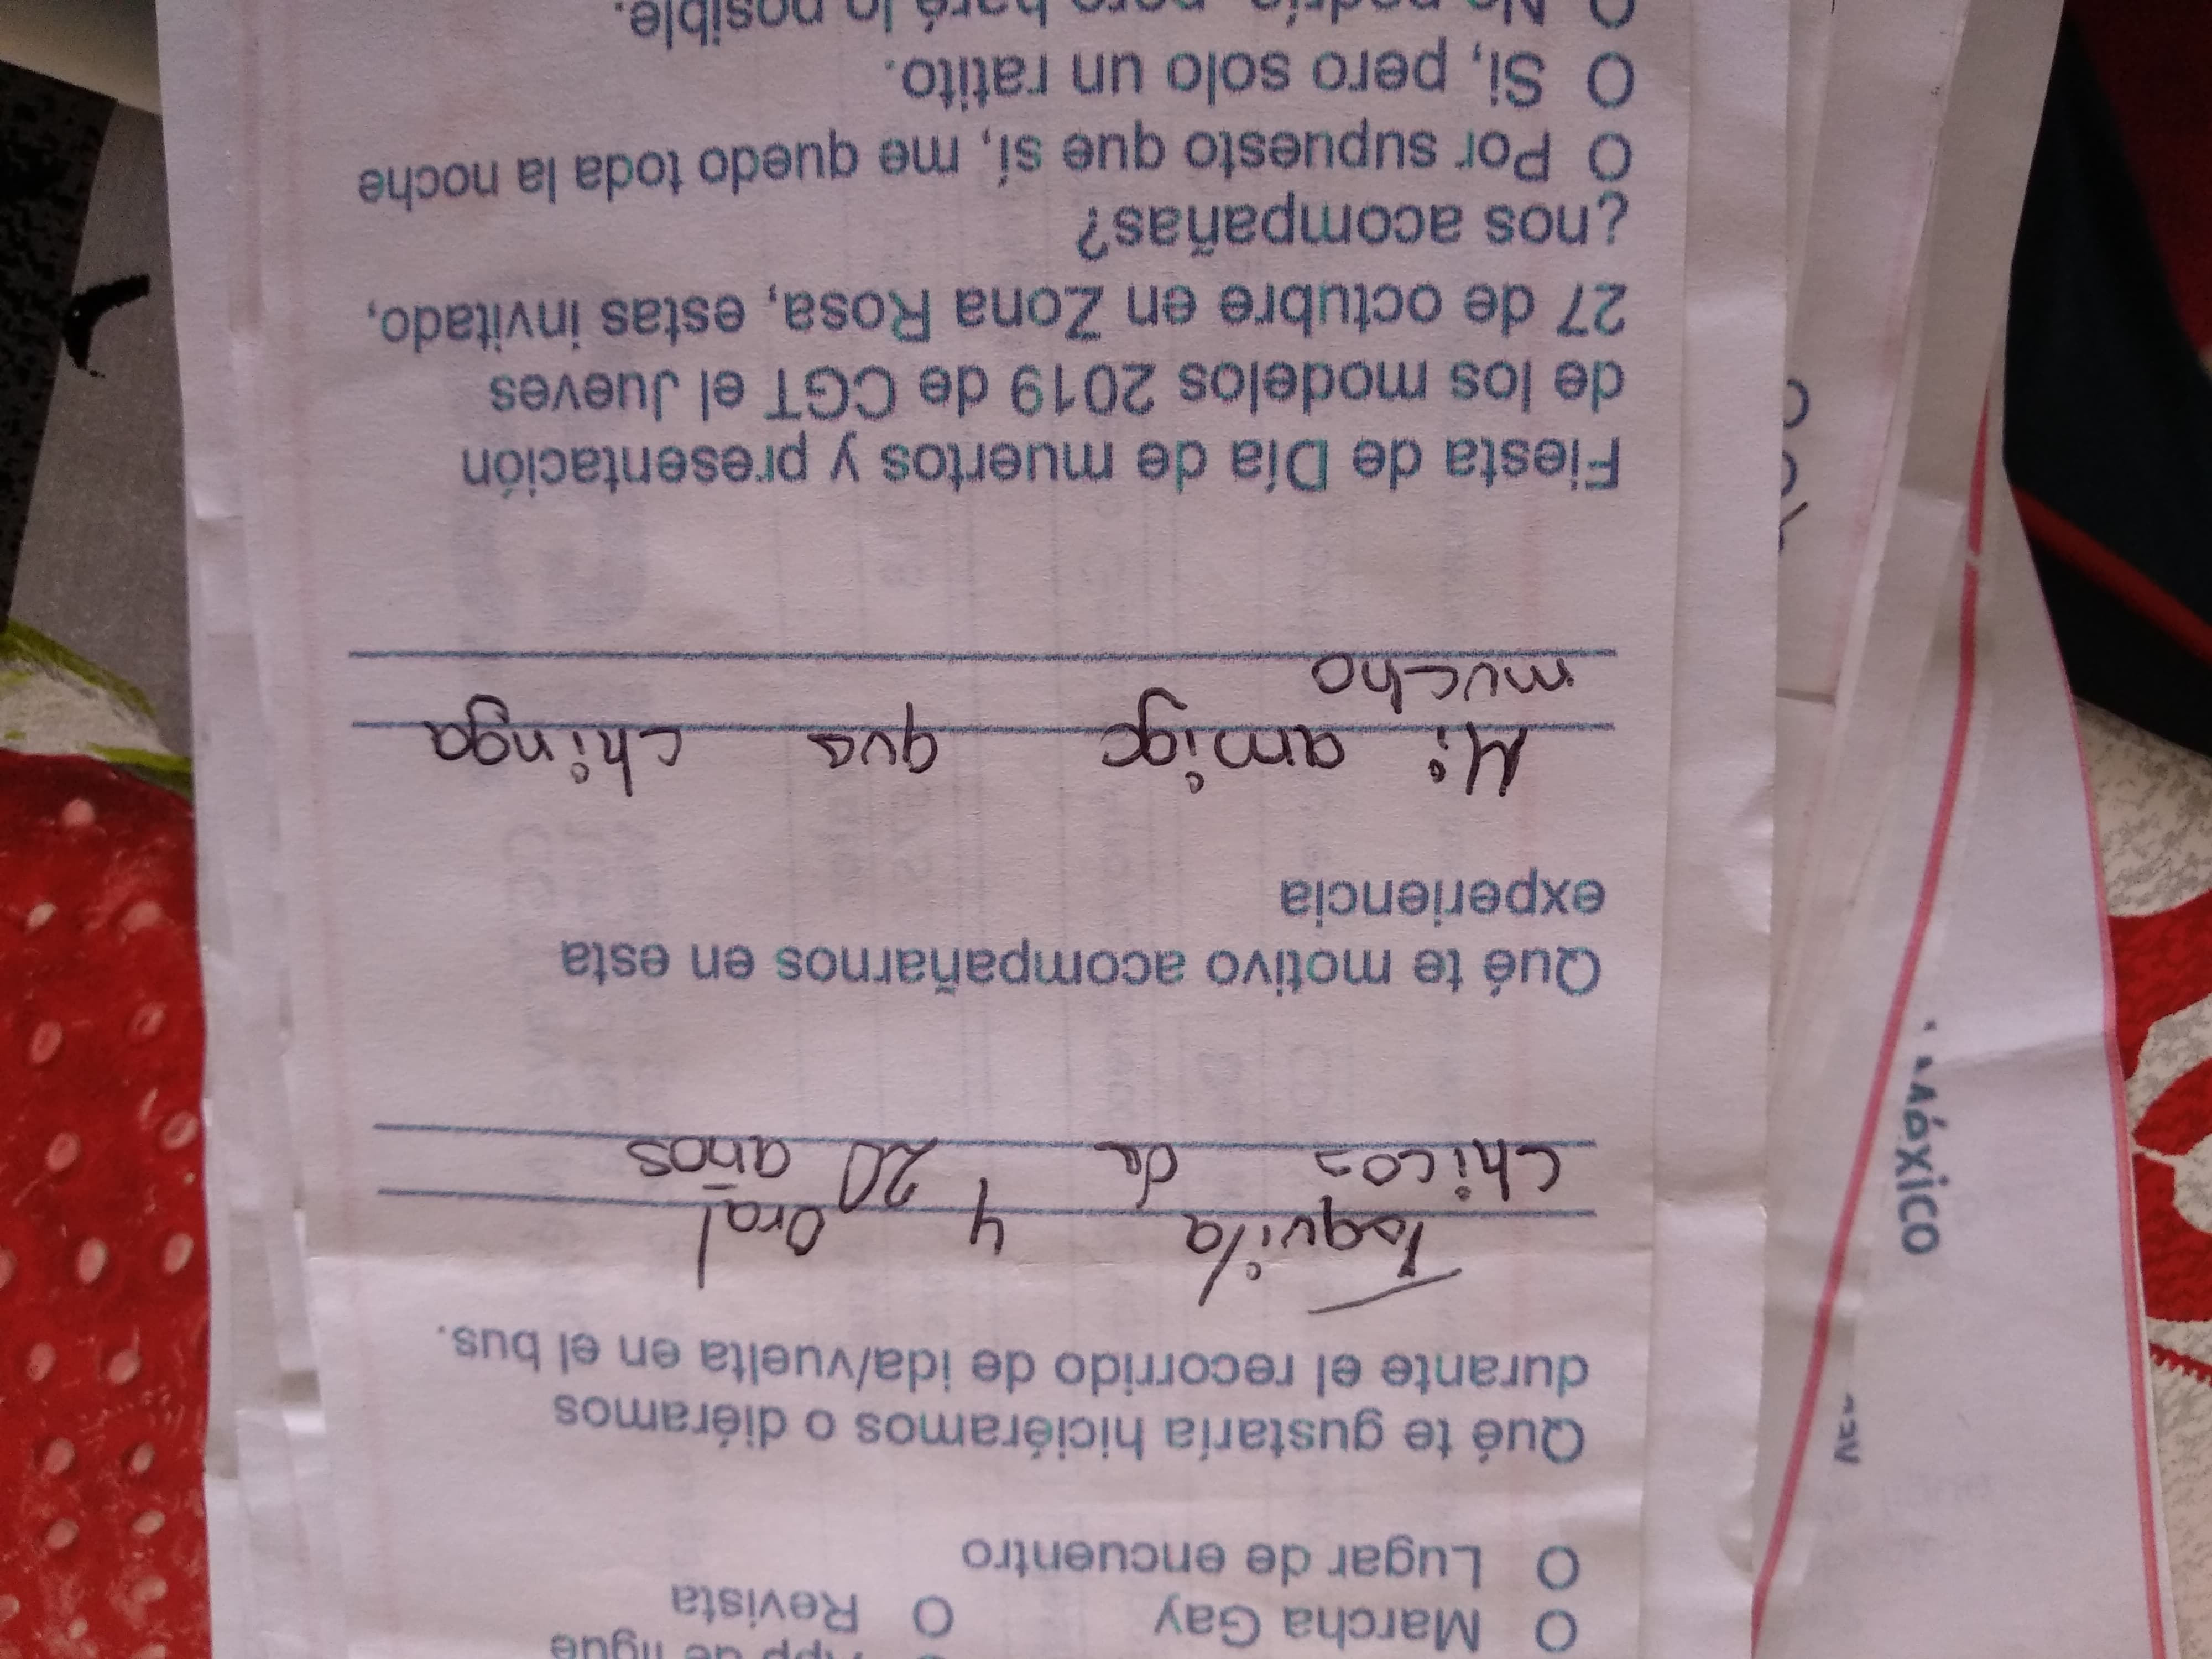 App de ligue
O Marcha Gay O Revista
O Lugar de encuentro
Qué te gustaría hiciéramos o diéramos
durante el recorrido de ida/vuelta en el bus.
Tequila y oral
chicos de 20 años
Qué te motivo acompañarnos en esta
experiencia
Mi amigo que chinga
mucho
Fiesta de Día de muertos y presentación
de los modelos 2019 de CGT el Jueves
27 de octubre en Zona Rosa, estas invitado,
¿nos acompañas?
O Por supuesto que sí, me quedo toda la noche
O Si, pero solo un ratito.
O No podría, pero haré lo posible.
México